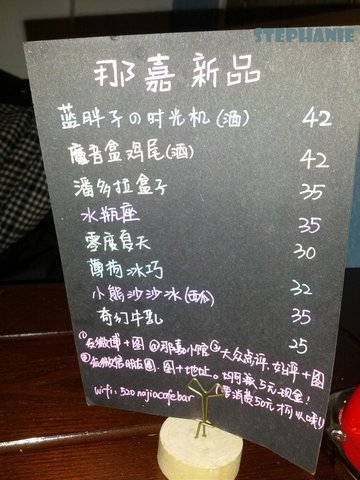 STEPHANIE
那嘉新品
蓝胖子の时光机(酒) 42
魔音盒鸡尾(酒) 42
潘多拉盒子 35
水瓶座 35
零度夏天 30
薄荷冰巧 32
小熊沙沙冰(西瓜) 35
奇幻牛乳 25
①发微博+图@那嘉小馆 ③大众点评、好评+图
②发微信朋友圈,图+地址。均可减5元现金!
(需消费50元才可以哦!)
wifi: 520 najiacafe.bar